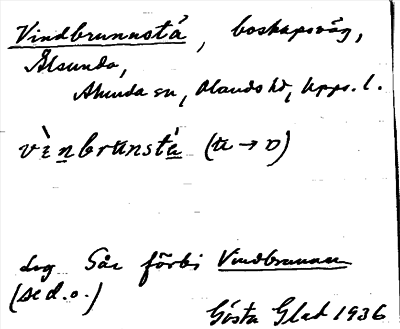 Vindbrunnstå, boskapsväg,
Ålsunda,
Almunda sn, Olands hd, Upps. l.
vìnbrunstá (u → ʋ)
dvg går förbi Vindbrunnen
(se d. o.)
Gösta Glad 1936